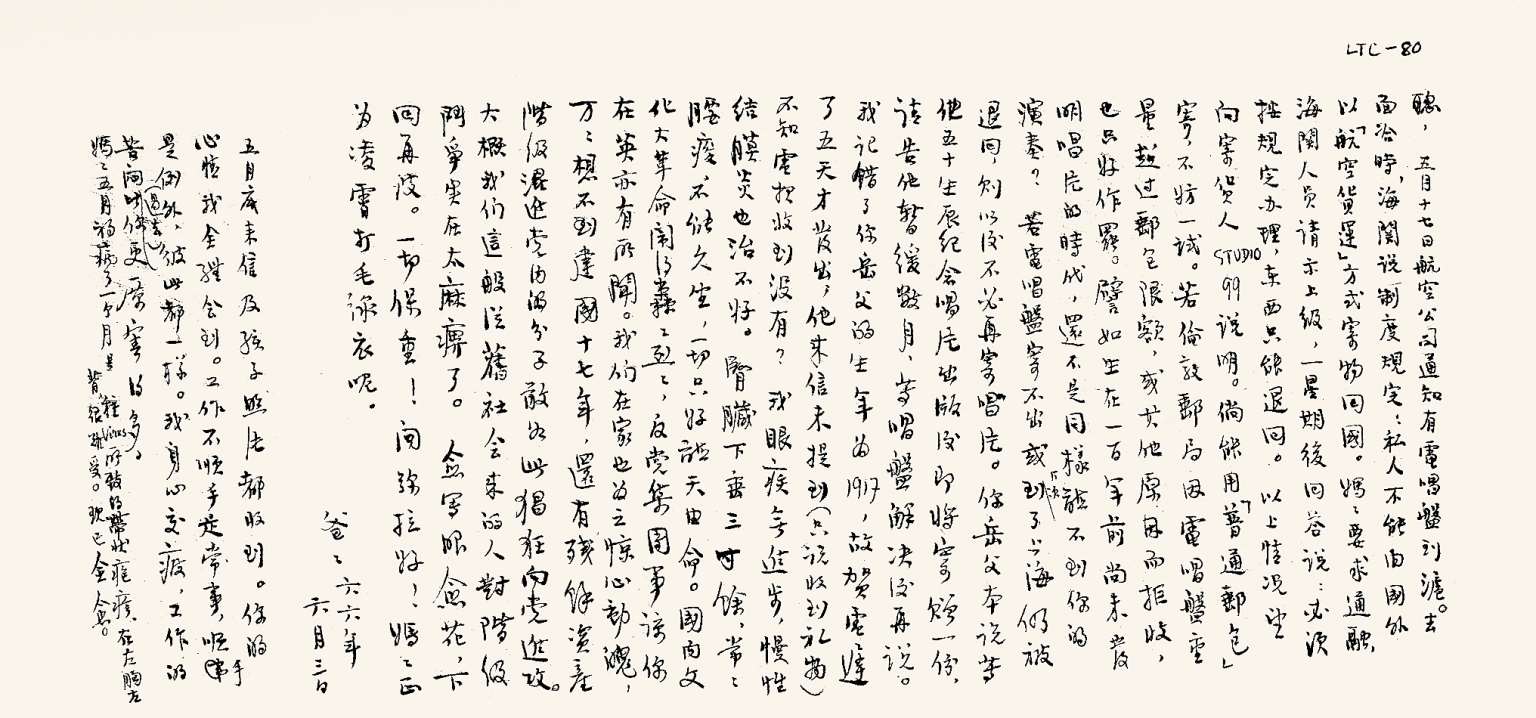 LTC-80
聰，五月十七日航空公司通知有電唱盤到滬。去
面洽時，海関说制度規定：私人不能由國外
以「航空貨運」方式寄物回國。媽媽要求通融，
海関人员请示上级，一星期後回答说：必须
按規定办理，东西只能退回。以上情况望
向寄貨人STUDIO 99说明。倘能用「普通郵包」
寄，不妨一試。若倫敦郵局因電唱盤重
量超过郵包限额，或其他原因而拒收，
也只好作罷。譬如生在一百年前尚未發
明唱片的時代，還不是同樣聽不到你的
演奏？若電唱盤寄不出或到了上海仍被
退回，则以後不必再寄唱片。你岳父本说等
他五十生辰纪念唱片出版後即将寄贈一份，
请告他暫缓数月，等唱盤解决後再说。
我记錯了你岳父的生年为1917，故賀電遲
了五天才发出，他来信未提到（只说收到礼物）
不知電报收到没有？我眼疾無進步，慢性
结膜炎也治不好。腎臟下垂三寸餘，常常
腰痠，不能久坐，一切只好聽天由命。國内文
化大革命闹得轟轟烈烈，反党集團事谅你
在英亦有所聞。我们在家也为之惊心動魄，
万万想不到建國十七年，還有殘餘資產
階级混進党内的分子敢如此猖狂向党進攻。
大概我们這般從舊社会来的人對階级
鬥爭实在太麻痹了。愈写眼愈花，下
回再谈。一切保重！问弥拉好！媽媽正
为凌霄打毛線衣呢。
爸爸 六六年
六月三日
五月底来信及孩子照片都收到。你的
心情我全體会到。工作不顺手是常事，顺手
是例外，彼此都一樣。我身心交疲，工作的
苦闷（過去）比你更厲害的多。
媽媽五月初病了一个月，是一種Virus所致的帶狀疱疹，在左胸左
背，很难受。现已全愈。